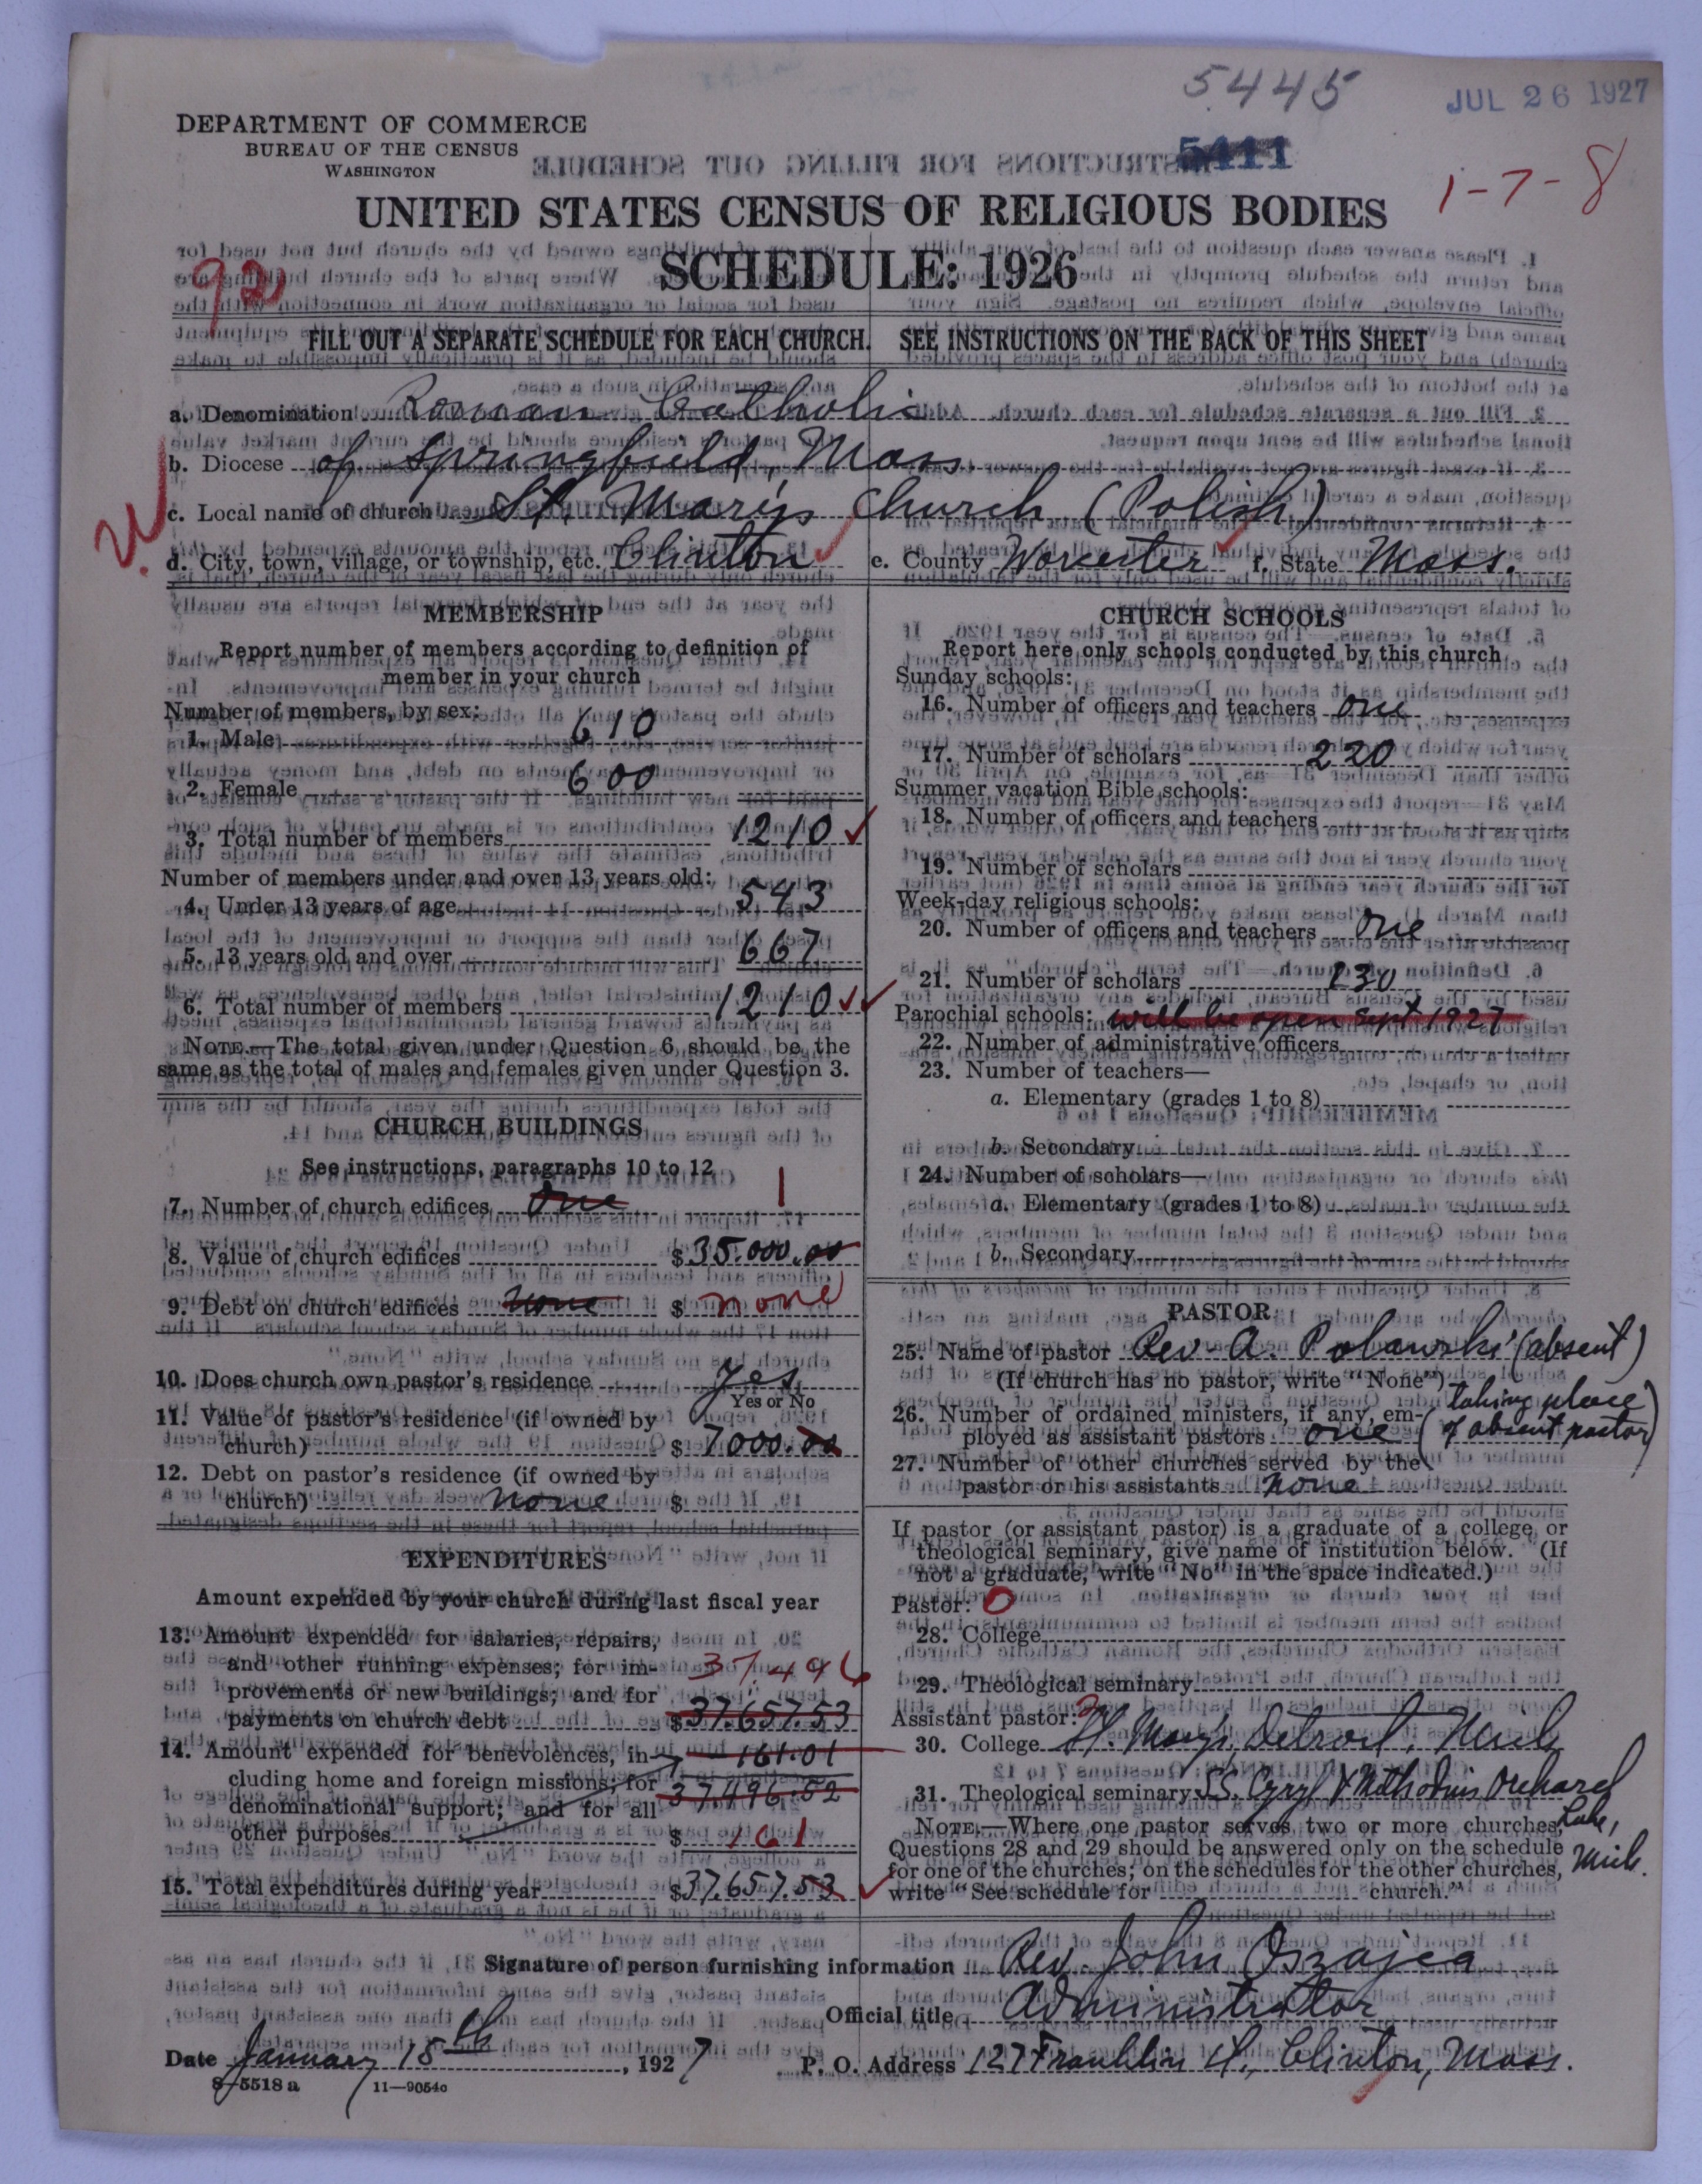 5445
JUL 26 1927
DEPARTMENT OF COMMERCE
BUREAU OF THE CENSUS
WASHINGTON
5411
1-7-8
UNITED STATES CENSUS OF RELIGIOUS BODIES
SCHEDULE: 1926
FILL OUT A SEPARATE SCHEDULE FOR EACH CHURCH. SEE INSTRUCTIONS ON THE BACK OF THIS SHEET
a. Denomination Roman Catholic
b. Diocese of Springfield, Mass.
c. Local name of church St. Mary's Church (Polish)
d. City, town, village, or township, etc. Clinton e. County Worcester f. State Mass.
MEMBERSHIP
Report number of members according to definition of
member in your church
Number of members, by sex:
1. Male 610
2. Female 600
3. Total number of members 1210
Number of members under and over 13 years old:
4. Under 13 years of age 543
5. 13 years old and over 667
6. Total number of members 1210
NOTE.—The total given under Question 6 should be the
same as the total of males and females given under Question 3.
CHURCH BUILDINGS
See instructions, paragraphs 10 to 12
7. Number of church edifices one 1
8. Value of church edifices $35.000.00
9. Debt on church edifices none $ none
10. Does church own pastor's residence Yes
Yes or No
11. Value of pastor's residence (if owned by
church) $ 7000.00
12. Debt on pastor's residence (if owned by
church) none $
EXPENDITURES
Amount expended by your church during last fiscal year
13. Amount expended for salaries, repairs,
and other running expenses; for im- 37.496
provements or new buildings; and for
payments on church debt $37.657.53
14. Amount expended for benevolences, in- 161.01
cluding home and foreign missions; for
denominational support; and for all 37.496.52
other purposes $ 161
15. Total expenditures during year $37.657.53
CHURCH SCHOOLS
Report here only schools conducted by this church
Sunday schools:
16. Number of officers and teachers one
17. Number of scholars 220
Summer vacation Bible schools:
18. Number of officers and teachers
19. Number of scholars
Week-day religious schools:
20. Number of officers and teachers one
21. Number of scholars 230
Parochial schools: will be open Sept 1927
22. Number of administrative officers
23. Number of teachers—
a. Elementary (grades 1 to 8)
b. Secondary
24. Number of scholars—
a. Elementary (grades 1 to 8)
b. Secondary
PASTOR
25. Name of pastor Rev. A. (absent)
(If church has no pastor, write "None")
26. Number of ordained ministers, if any, em- (taking place
ployed as assistant pastors one of absent pastor)
27. Number of other churches served by the
pastor or his assistants none
If pastor (or assistant pastor) is a graduate of a college or
theological seminary, give name of institution below. (If
not a graduate, write "No" in the space indicated.)
Pastor: 0
28. College
29. Theological seminary
Assistant pastor: 2
30. College St. Mary's, Detroit, Mich
31. Theological seminary SS. Cyryl & Methodius Orchard
Lake,
Mich.
NOTE.—Where one pastor serves two or more churches,
Questions 28 and 29 should be answered only on the schedule
for one of the churches; on the schedules for the other churches,
write "See schedule for church."
Signature of person furnishing information Rev. John Oszajca
Official title Administrator
Date January 18th, 1927 P. O. Address 127 Franklin St., Clinton, Mass.
8-5518a 11—9054c